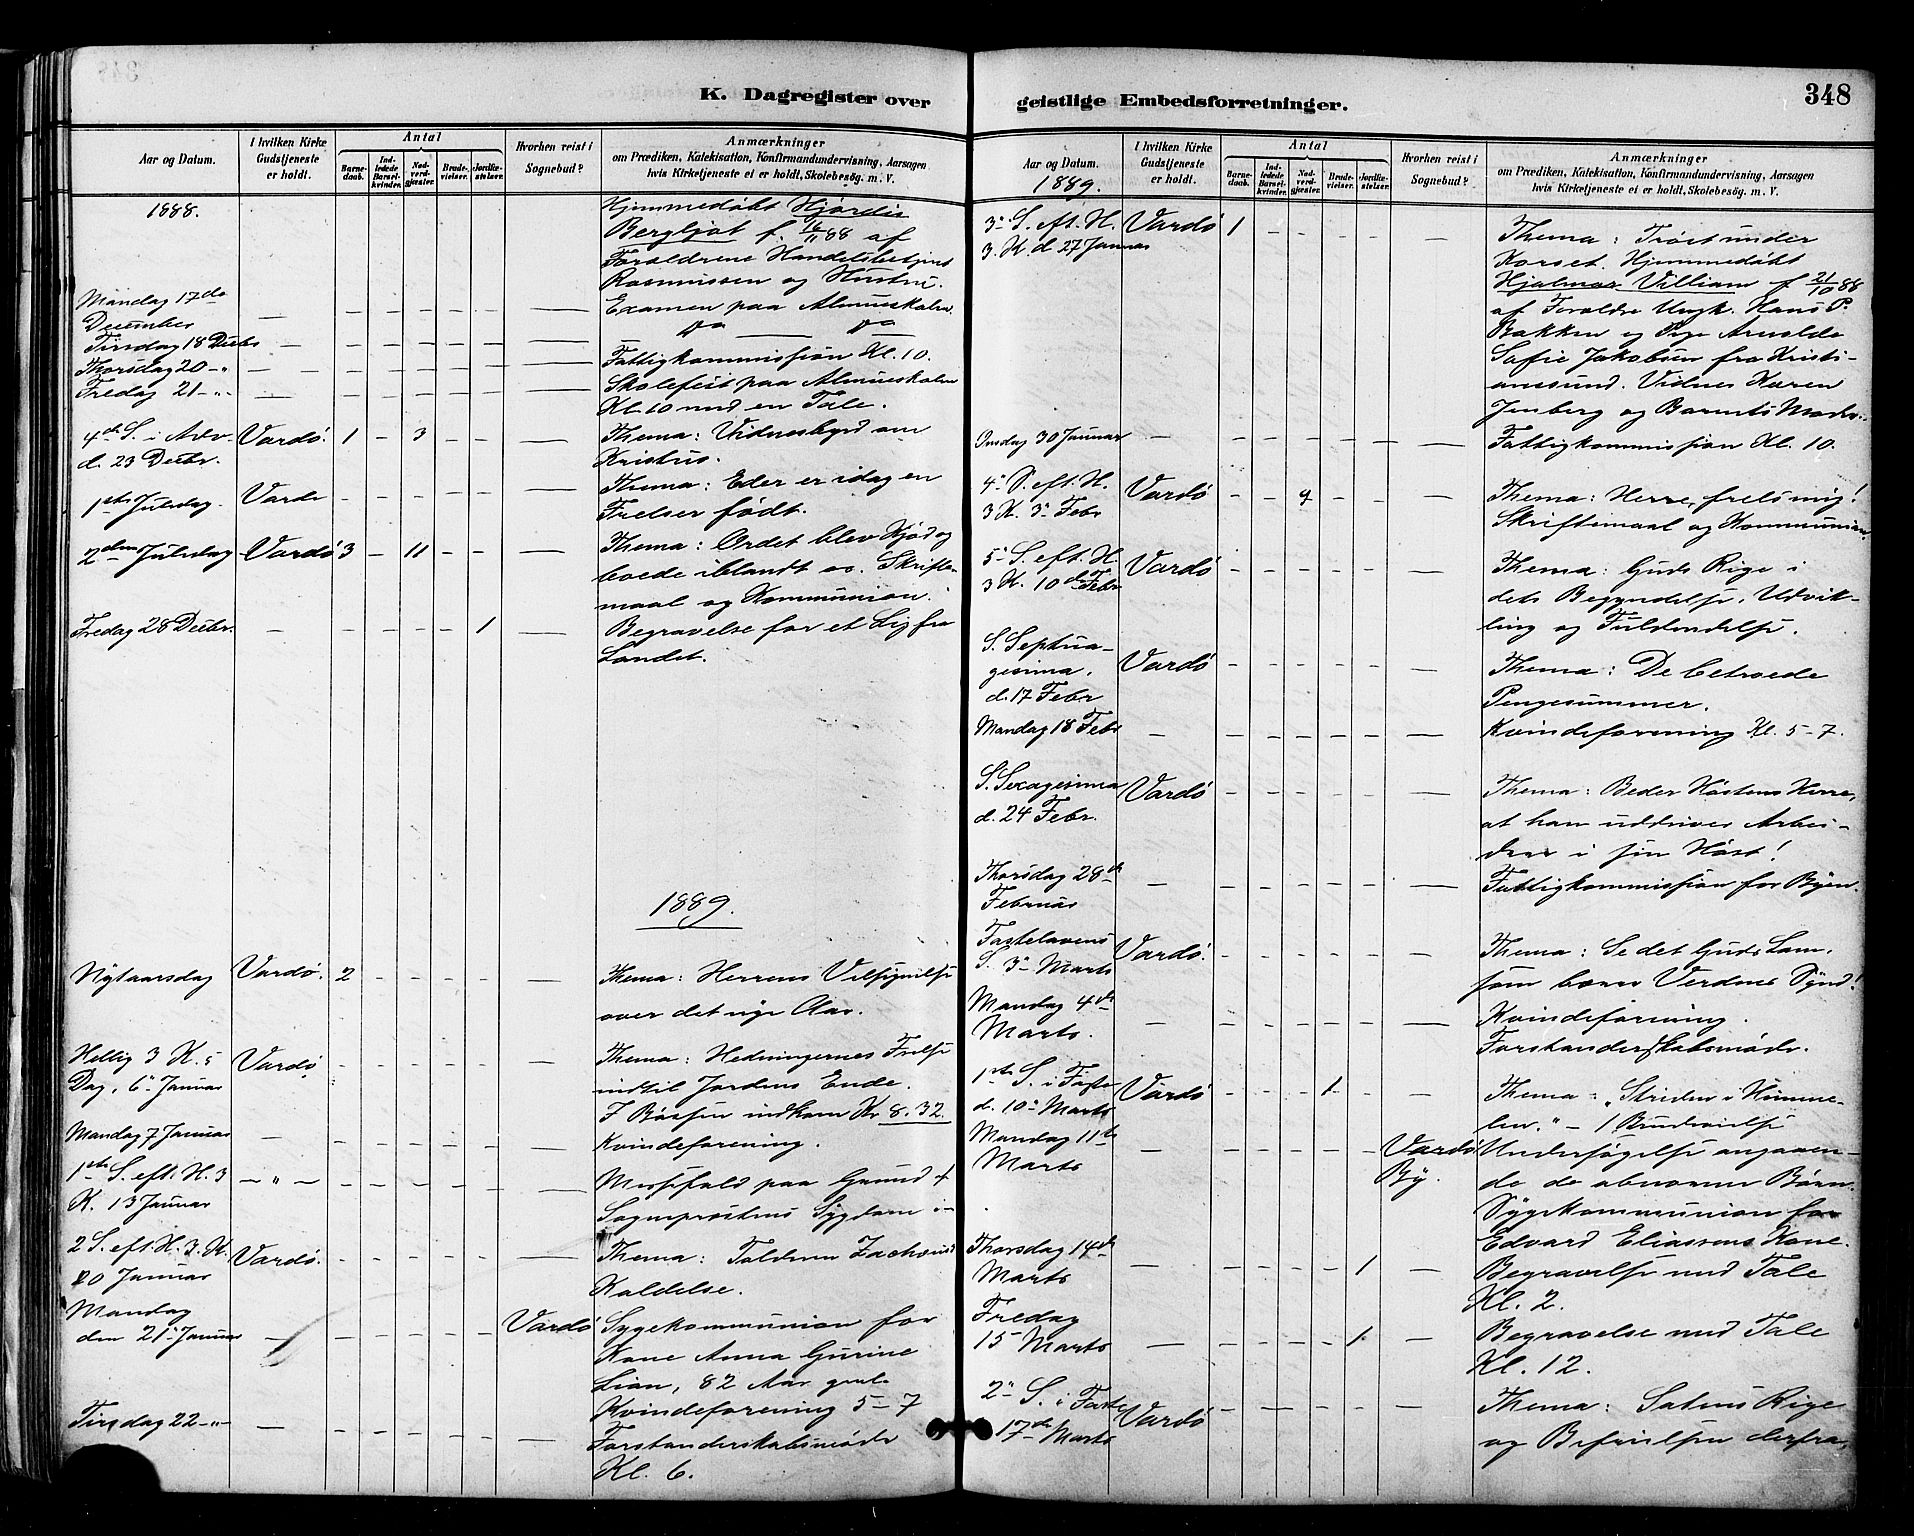 K. Dagregister over
Aar og Datum.
I hvilken Kirke
Gudstjeneste
er holdt.
Antal
Barne-
daab.
Ind-
ledede
Barsel-
kvinder.
Nad-
verd-
gjæster.
Brude-
vielser.
Jordfæ-
stelser.
Hvorhen reist i
Sognebud?
Anmærkninger
om Prædiken, Katekisation, Konfirmandundervisning, Aarsagen
hvis Kirketjeneste ei er holdt, Skolebesøg. m. V.
1888.
Hjemmedøbt Hjørdis
Bergljot f. 16/11 88 af
Forældrene Handelsbetjent
Rasmussen og Hustru.
Mandag 17de — — — — — — — Examen paa Almueskolen
December
Tirsdag 18 Decbr — — — — — — — do — do
Thorsdag 20 — " — — — — — — — Fattigkommission Kl. 10.
Fredag 21 — " — — — — — — — Skolefest paa Almueskolen
Kl. 10 med en Tale.
4de S. i Adv. Vardø. 1 — 3 — — — Thema: Vidnesbyrd om
d. 23 Decbr. Kristus.
1ste Juledag. Vardø — — — — — — Thema: Eder er idag en
Frelser født.
2den Juledag Vardø 3 — 11 — — — Thema: Ordet blev Kjød og
boede iblandt os. Skrifte-
maal og Kommunion.
Fredag 28 Decbr. — — — — — 1 — Begravelse for et Lig fra
Landet.
1889.
Nytaarsdag Vardø. 2 — — — — — Thema: Herrens Velsignelse
over det nye Aar.
Hellig 3 K.s Vardø — — — — — — Thema: Hedningernes Frelse
Dag, 6te Januar indtil Jordens Ende.
I Bøssen indkom Kr 8.32.
Mandag 7 Januar — — — — — — — Kvindeforening.
1ste S. eft. H. 3 — " — — — — — — — Messefald paa Grund +
K. 13 Januar Sogneprestens Sygdom
2 S. eft. H. 3. K. Vardø. — — — — — — Thema: Tolderen Zachæus's
20 Januar Kaldelse.
Mandag
den 21 Januar — — — — — — Vardø Sygekommunion for
Kone Anna Gurine
Lian, 82 Aar gml.
Kvindeforening 5–7
Tirsdag 22 — " — — — — — — — Forstanderskabsmøde
Kl. 6.
geistlige Embedsforretninger.
348
Aar og Datum.
1889.
I hvilken Kirke
Gudstjeneste
er holdt.
Antal
Barne-
daab.
Ind-
ledede
Barsel-
kvinder.
Nad-
verd-
gjæster.
Brude-
vielser.
Jordfæ-
stelser.
Hvorhen reist i
Sognebud?
Anmærkninger
om Prædiken, Katekisation, Konfirmandundervisning, Aarsagen
hvis Kirketjeneste ei er holdt, Skolebesøg. m. V.
3 S. eft. H. Vardø 1 — — — — — Thema: Trøst under
3. K. d. 27 Januar Korset. Hjemmedøbt
Hjalmar Villiam f. 21/10 88
af Forældre Ungk. Hans P.
Bakken og Pige Arnolde
Sofie Jakobsen fra Kristi-
anssund. Vidnes Karen
Jenberg og Barnets Moder.
Onsdag 30 Januar — — — — — — — Fattigkommission Kl. 10.
4 S. eft. H. Vardø — — 9 — — — Thema: Herre, frels mig!
3 K. 3 Febr Skriftemaal og Kommunion.
5 S. eft. H. Vardø — — — — — — Thema: Guds Rige i
3 K. 10de Febr dets Begyndelse, Udvik-
ling og Fuldendelse.
S. Septua-
gesima. Vardø — — — — — — Thema: De betroede
d. 17 Febr Pengesummer.
Mandag 18 Febr — — — — — — — Kvindeforening Kl. 5–7.
S. Sexagesima Vardø — — — — — — Thema: Beder Høstens Herre,
d. 24 Febr. at han uddriver Arbei-
dere i sin Høst!
Thorsdag 28de — — — — — — — Fattigkommission for Byen.
Februar
Fastelavens Vardø. — — — — — — Thema: Se det Guds Lam,
S. 3 Marts som bærer Verdens Synd!
Mandag 4de — — — — — — — Kvindeforening.
Marts. Forstanderskabsmøde.
1ste S. i Faste Vardø — — — 1 — — Thema: „Striden i Himme-
d. 10 Marts len." — 1 Brudevielse
Mandag 11te — — — — — — Vardø Undersøgelse angaaen-
Marts By. de de abnorme Børn.
Sygekommunion for
Edvard Eliassens Kone.
Thorsdag 14de — — — — — 1 — Begravelse med Tale
Marts Kl. 2.
Fredag
15 Marts — — — — — 1 — Begravelse med Tale
Kl. 12.
2 S. i Faste Vardø — — — — — — Thema: Satans Rige
17de Marts og Befrielsen derfra.